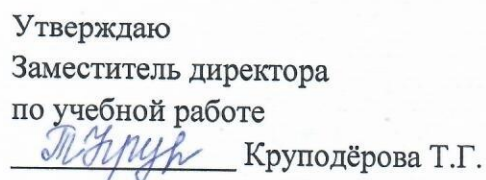 Утверждаю
Заместитель директора
по учебной работе
Круподёрова Т.Г.